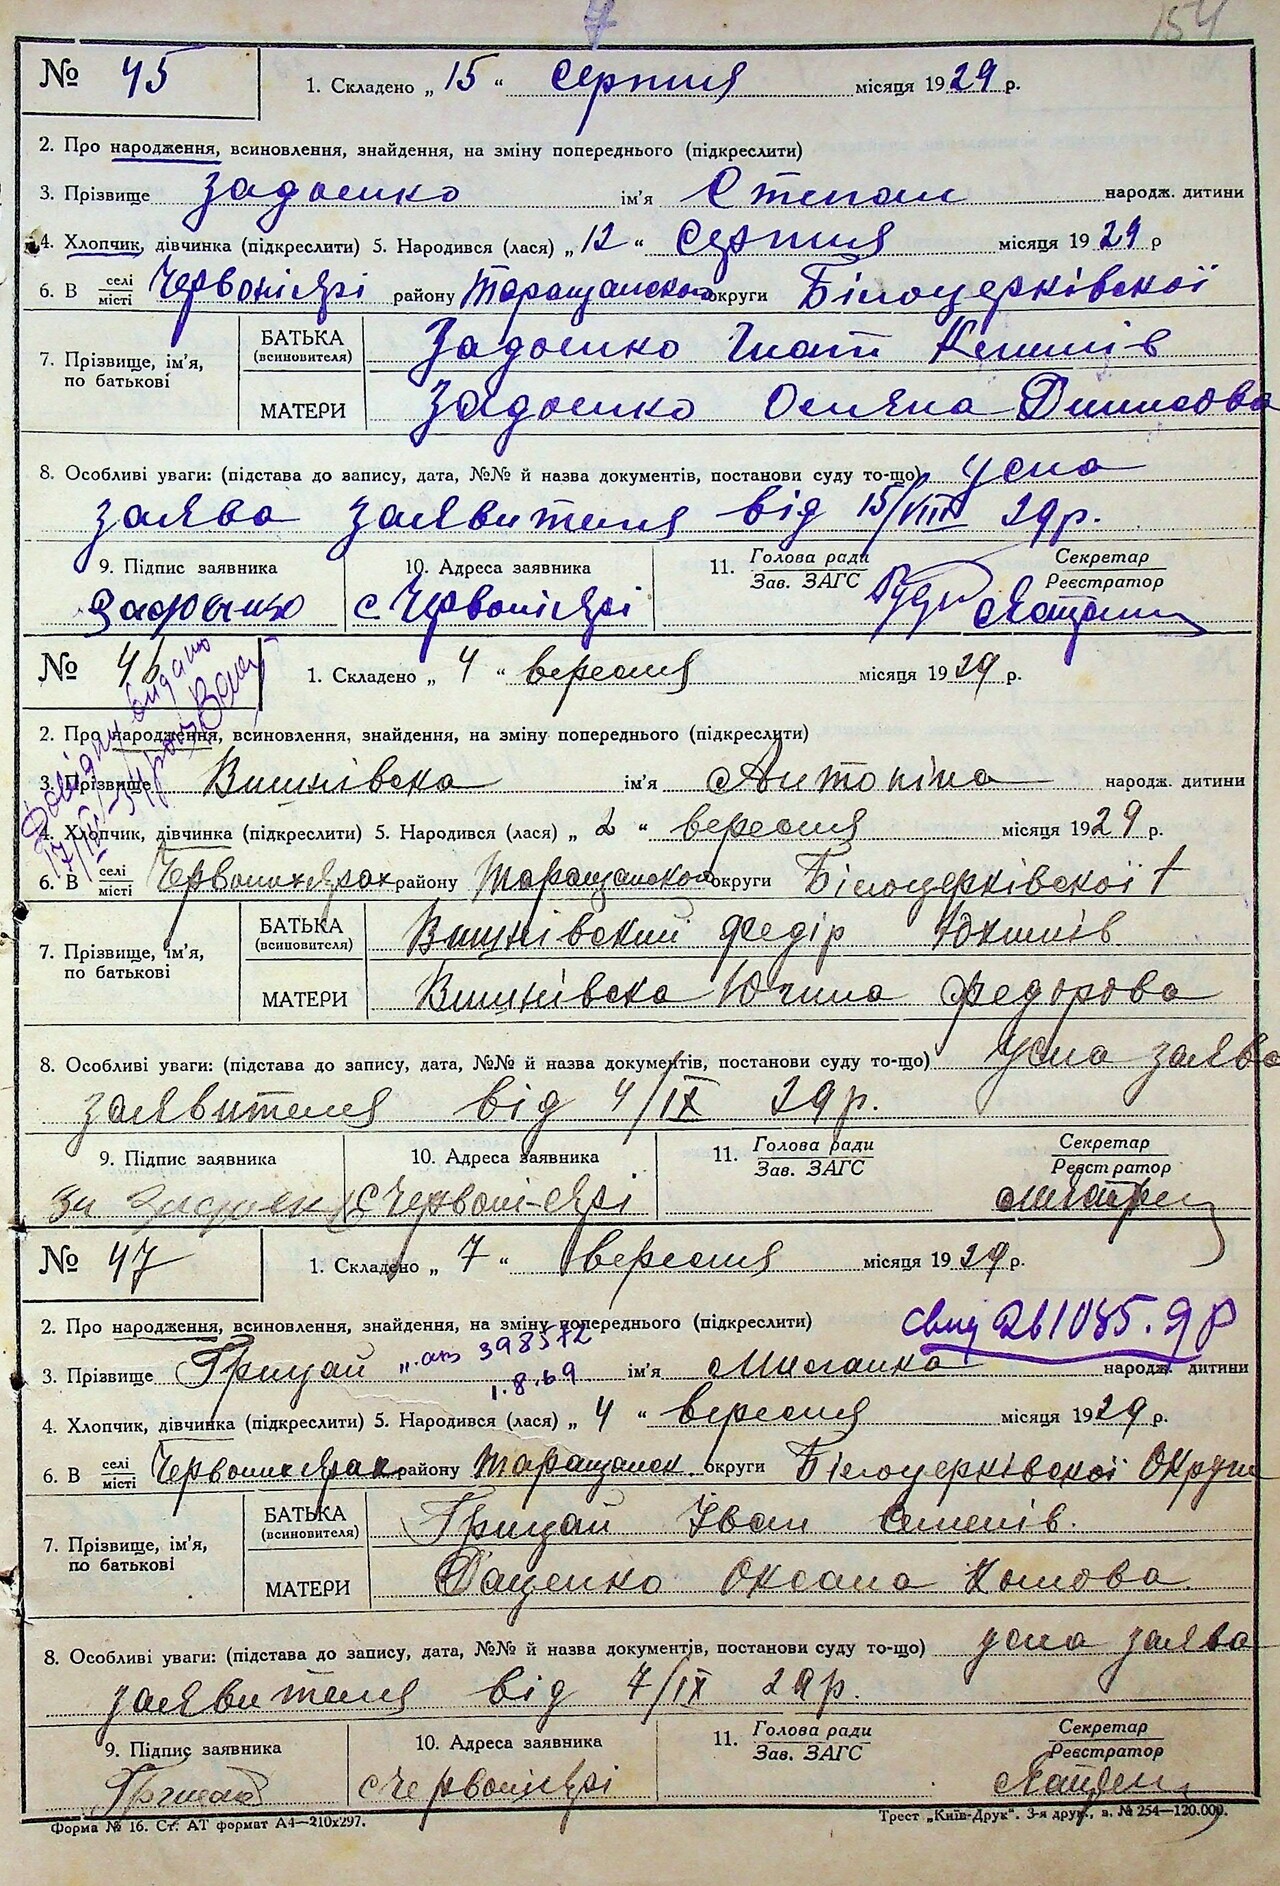 154
№ 45 1. Складено „ 15 “ серпня місяця 1929 р.
2. Про народження, всиновлення, знайдення, на зміну попереднього (підкреслити)
3. Прізвище Задоенко ім'я Степан народж. дитини
4. Хлопчик, дівчинка (підкреслити) 5. Народився (лася) „ 12 “ серпня місяця 1929 р
6. В селі місті Червоні Ярі району Таращанского округи Білоцерківскої
7. Прізвище, ім'я, по батькові БАТЬКА (всиновителя) Задоенко Гнат
МАТЕРИ Задоенко Денисова
8. Особливі уваги: (підстава до запису, дата, №№ й назва документів, постанови суду то-що) усна
заява заявителя від 15/VIII 29 р.
9. Підпис заявника 10. Адреса заявника 11. Голова ради Зав. ЗАГС Секретар Реєстратор
с Червоні Ярі
№ 46 1. Складено „ 4 “ вересня місяця 1929 р.
Довідку видано
17/III-34 р
2. Про народження, всиновлення, знайдення, на зміну попереднього (підкреслити)
3. Прізвище Вишнівска ім'я Антоніна народж. дитини
4. Хлопчик, дівчинка (підкреслити) 5. Народився (лася) „ 2 “ вересня місяця 1929 р.
6. В селі місті Червоних Ярах району Таращанского округи Білоцерківскої
7. Прізвище, ім'я, по батькові БАТЬКА (всиновителя) Вишнівский Федір
МАТЕРИ Вишнівска Федорова
8. Особливі уваги: (підстава до запису, дата, №№ й назва документів, постанови суду то-що) усна заява
заявителя від 4/IX 29 р.
9. Підпис заявника 10. Адреса заявника 11. Голова ради Зав. ЗАГС Секретар Реєстратор
с Червоні-Ярі
№ 47 1. Складено „ 7 “ вересня місяця 1929 р.
2. Про народження, всиновлення, знайдення, на зміну попереднього (підкреслити)
398572
1.8.69
3. Прізвище Грицай ім'я народж. дитини
4. Хлопчик, дівчинка (підкреслити) 5. Народився (лася) „ 4 “ вересня місяця 1929 р.
6. В селі місті Червоних Ярах району Таращанск. округи Білоцерківскої Округи
7. Прізвище, ім'я, по батькові БАТЬКА (всиновителя) Грицай Іван Семенів.
МАТЕРИ Даценко Оксана
8. Особливі уваги: (підстава до запису, дата, №№ й назва документів, постанови суду то-що) усна заява
заявителя від 7/IX 29 р.
9. Підпис заявника 10. Адреса заявника 11. Голова ради Зав. ЗАГС Секретар Реєстратор
Грицай с Червоні Ярі
Форма № 16. Ст. АТ формат А4—210х297. Трест „Київ-Друк“. 3-я друк., в. № 254—120.000.